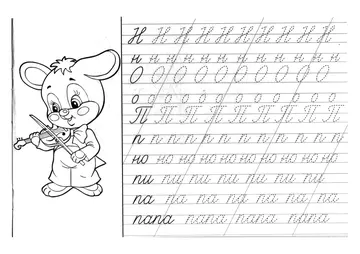 Н Н Н Н Н Н Н Н Н Н
н н н н н н н н н н н н
О О О О О О О О О О
о о о о о о о о о о о
П П П П П П П П П
п п п п п п п п п п
но но но но но но но но
пи пи пи пи пи пи
па па па па па па па
папа папа папа папа